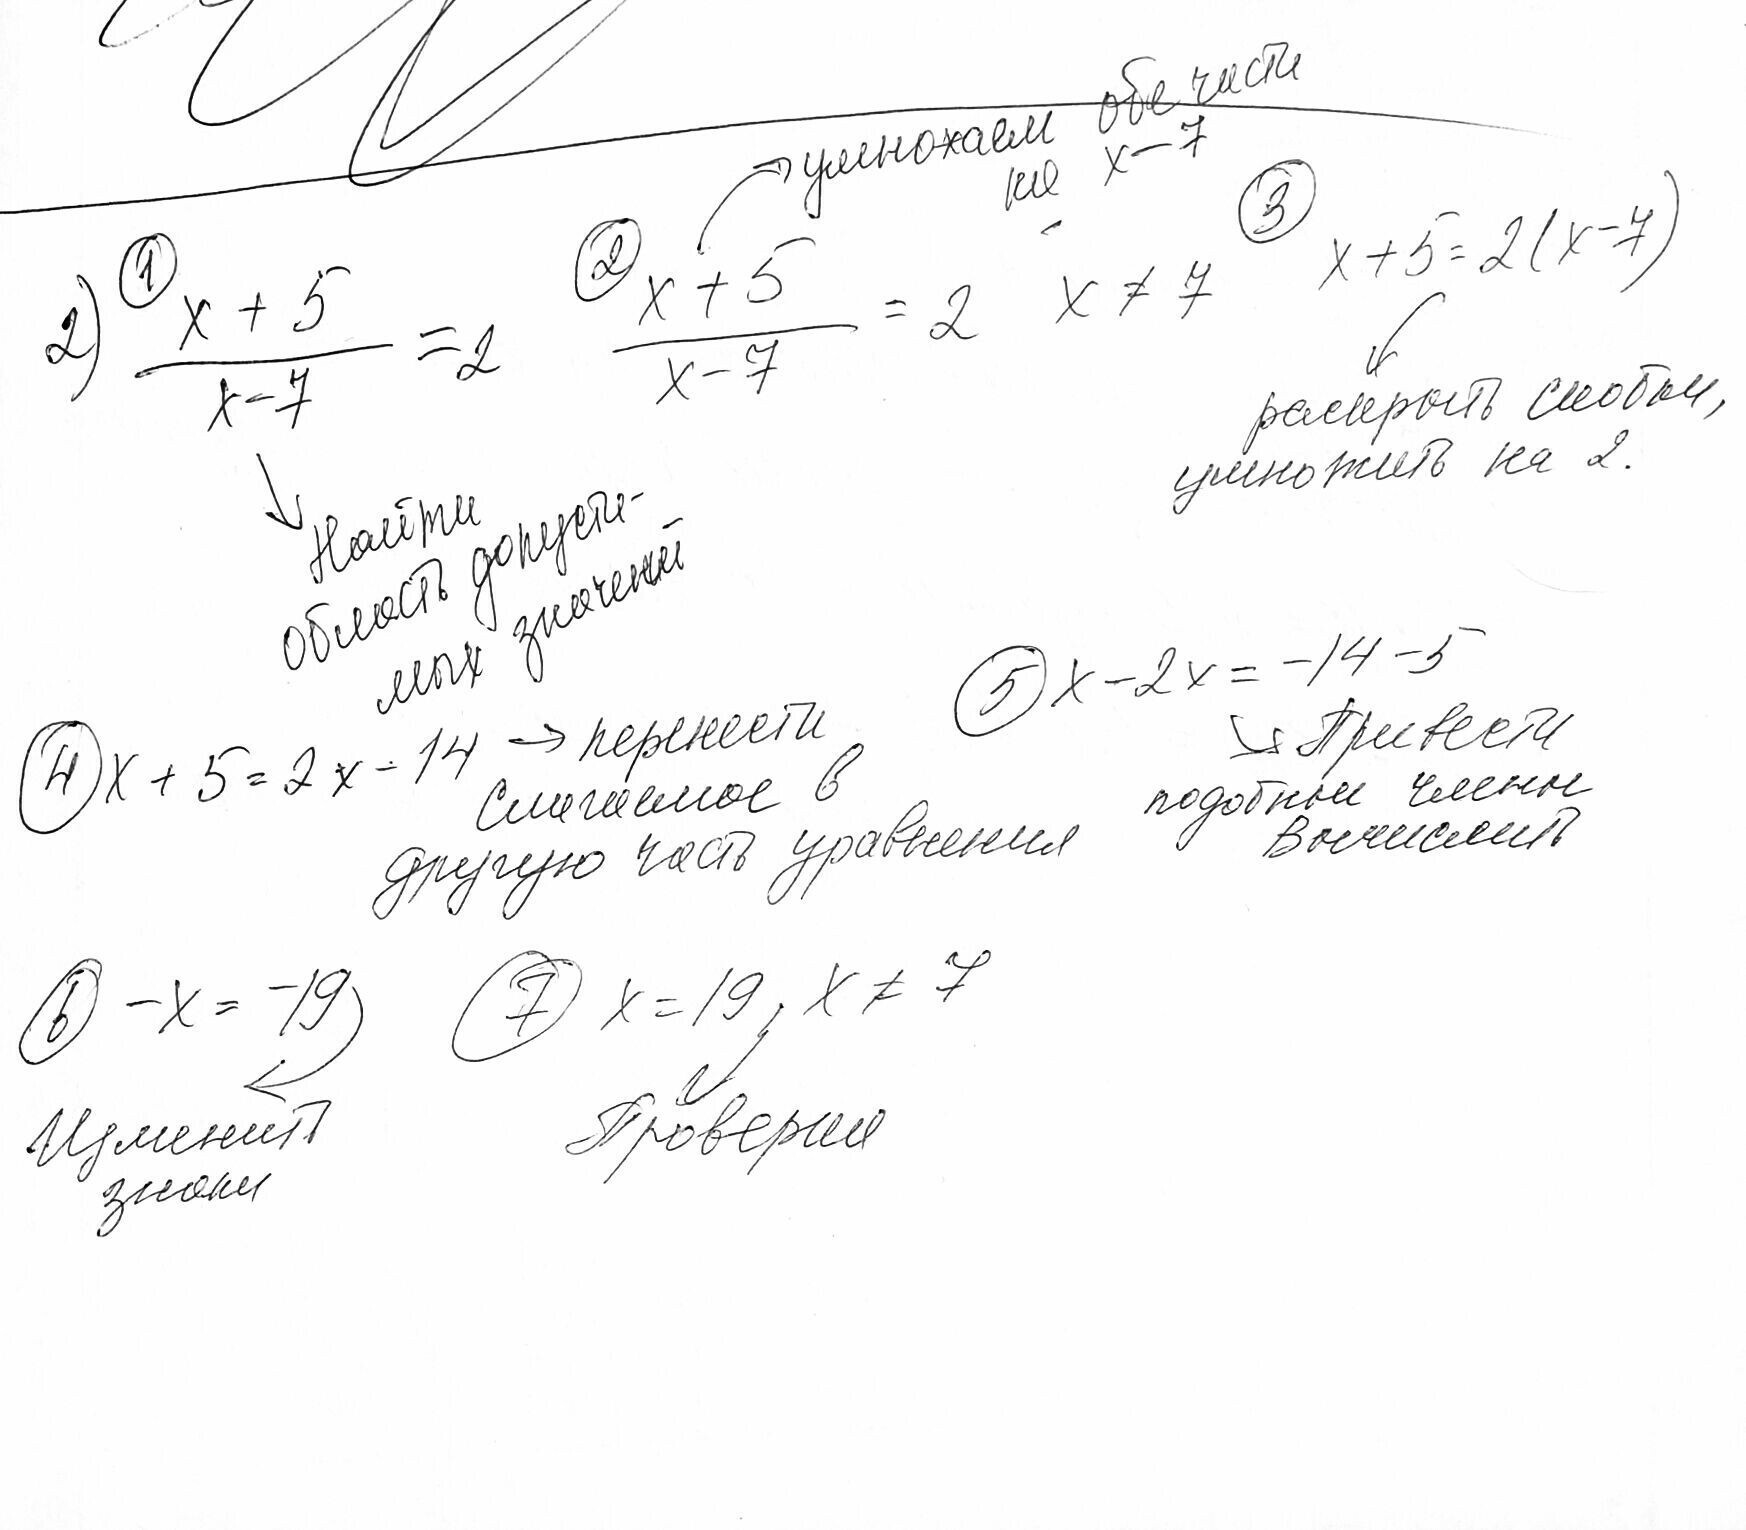 2) ① x + 5 / x - 7 = 2
Найти
область допусти-
мых значений
② x + 5 / x - 7 = 2 x ≠ 7
умножаем обе части
на x - 7
③ x + 5 = 2(x - 7)
раскрыть скобки,
умножить на 2.
④ x + 5 = 2x - 14 → перенести
слагаемое в
другую часть уравнения
⑤ x - 2x = -14 - 5
Привести
подобные члены
Вычислить
⑥ -x = -19
Изменить
знаки
⑦ x = 19, x ≠ 7
Проверка